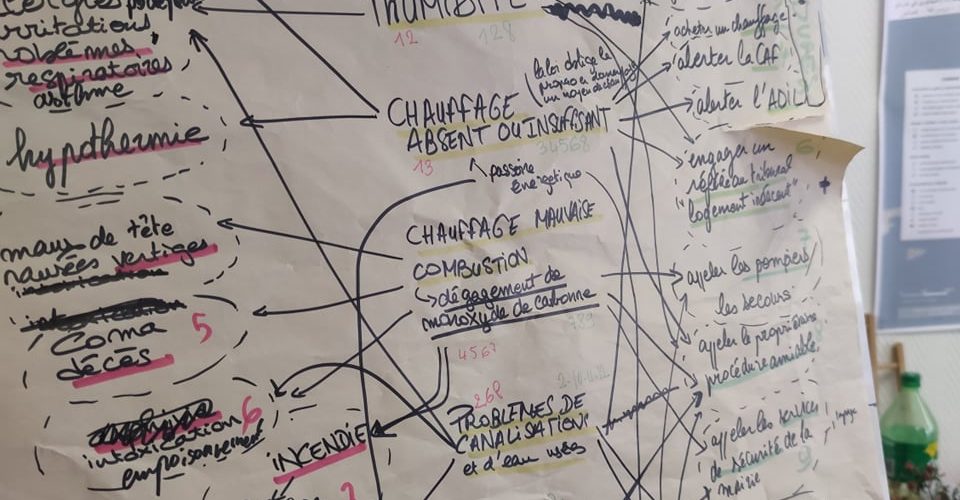 irritations
problèmes
respiratoires
asthme
hypothermie
maux de tête
nausées vertiges
Coma
décès
5
intoxication
empoisonnement
6
INCENDIE
HUMIDITÉ
12
128
la loi oblige le
proprio à
un moyen de chauffage
CHAUFFAGE
ABSENT OU INSUFFISANT
13
34568
passoire
énergetique
CHAUFFAGE MAUVAISE
COMBUSTION
dégagement de
monoxyde de carbonne
789
4567
268
PROBLÈMES DE
CANALISATIONS
et d'eau usées
acheter un chauffage
alerter la CAF
alerter l'ADIL
6
engager un
référé au tribunal
"logement indécent"
7
appeler les pompiers
les secours
appeler le propriétaire
8
procédure amiable
appeler les services
de sécurité de la
mairie
9